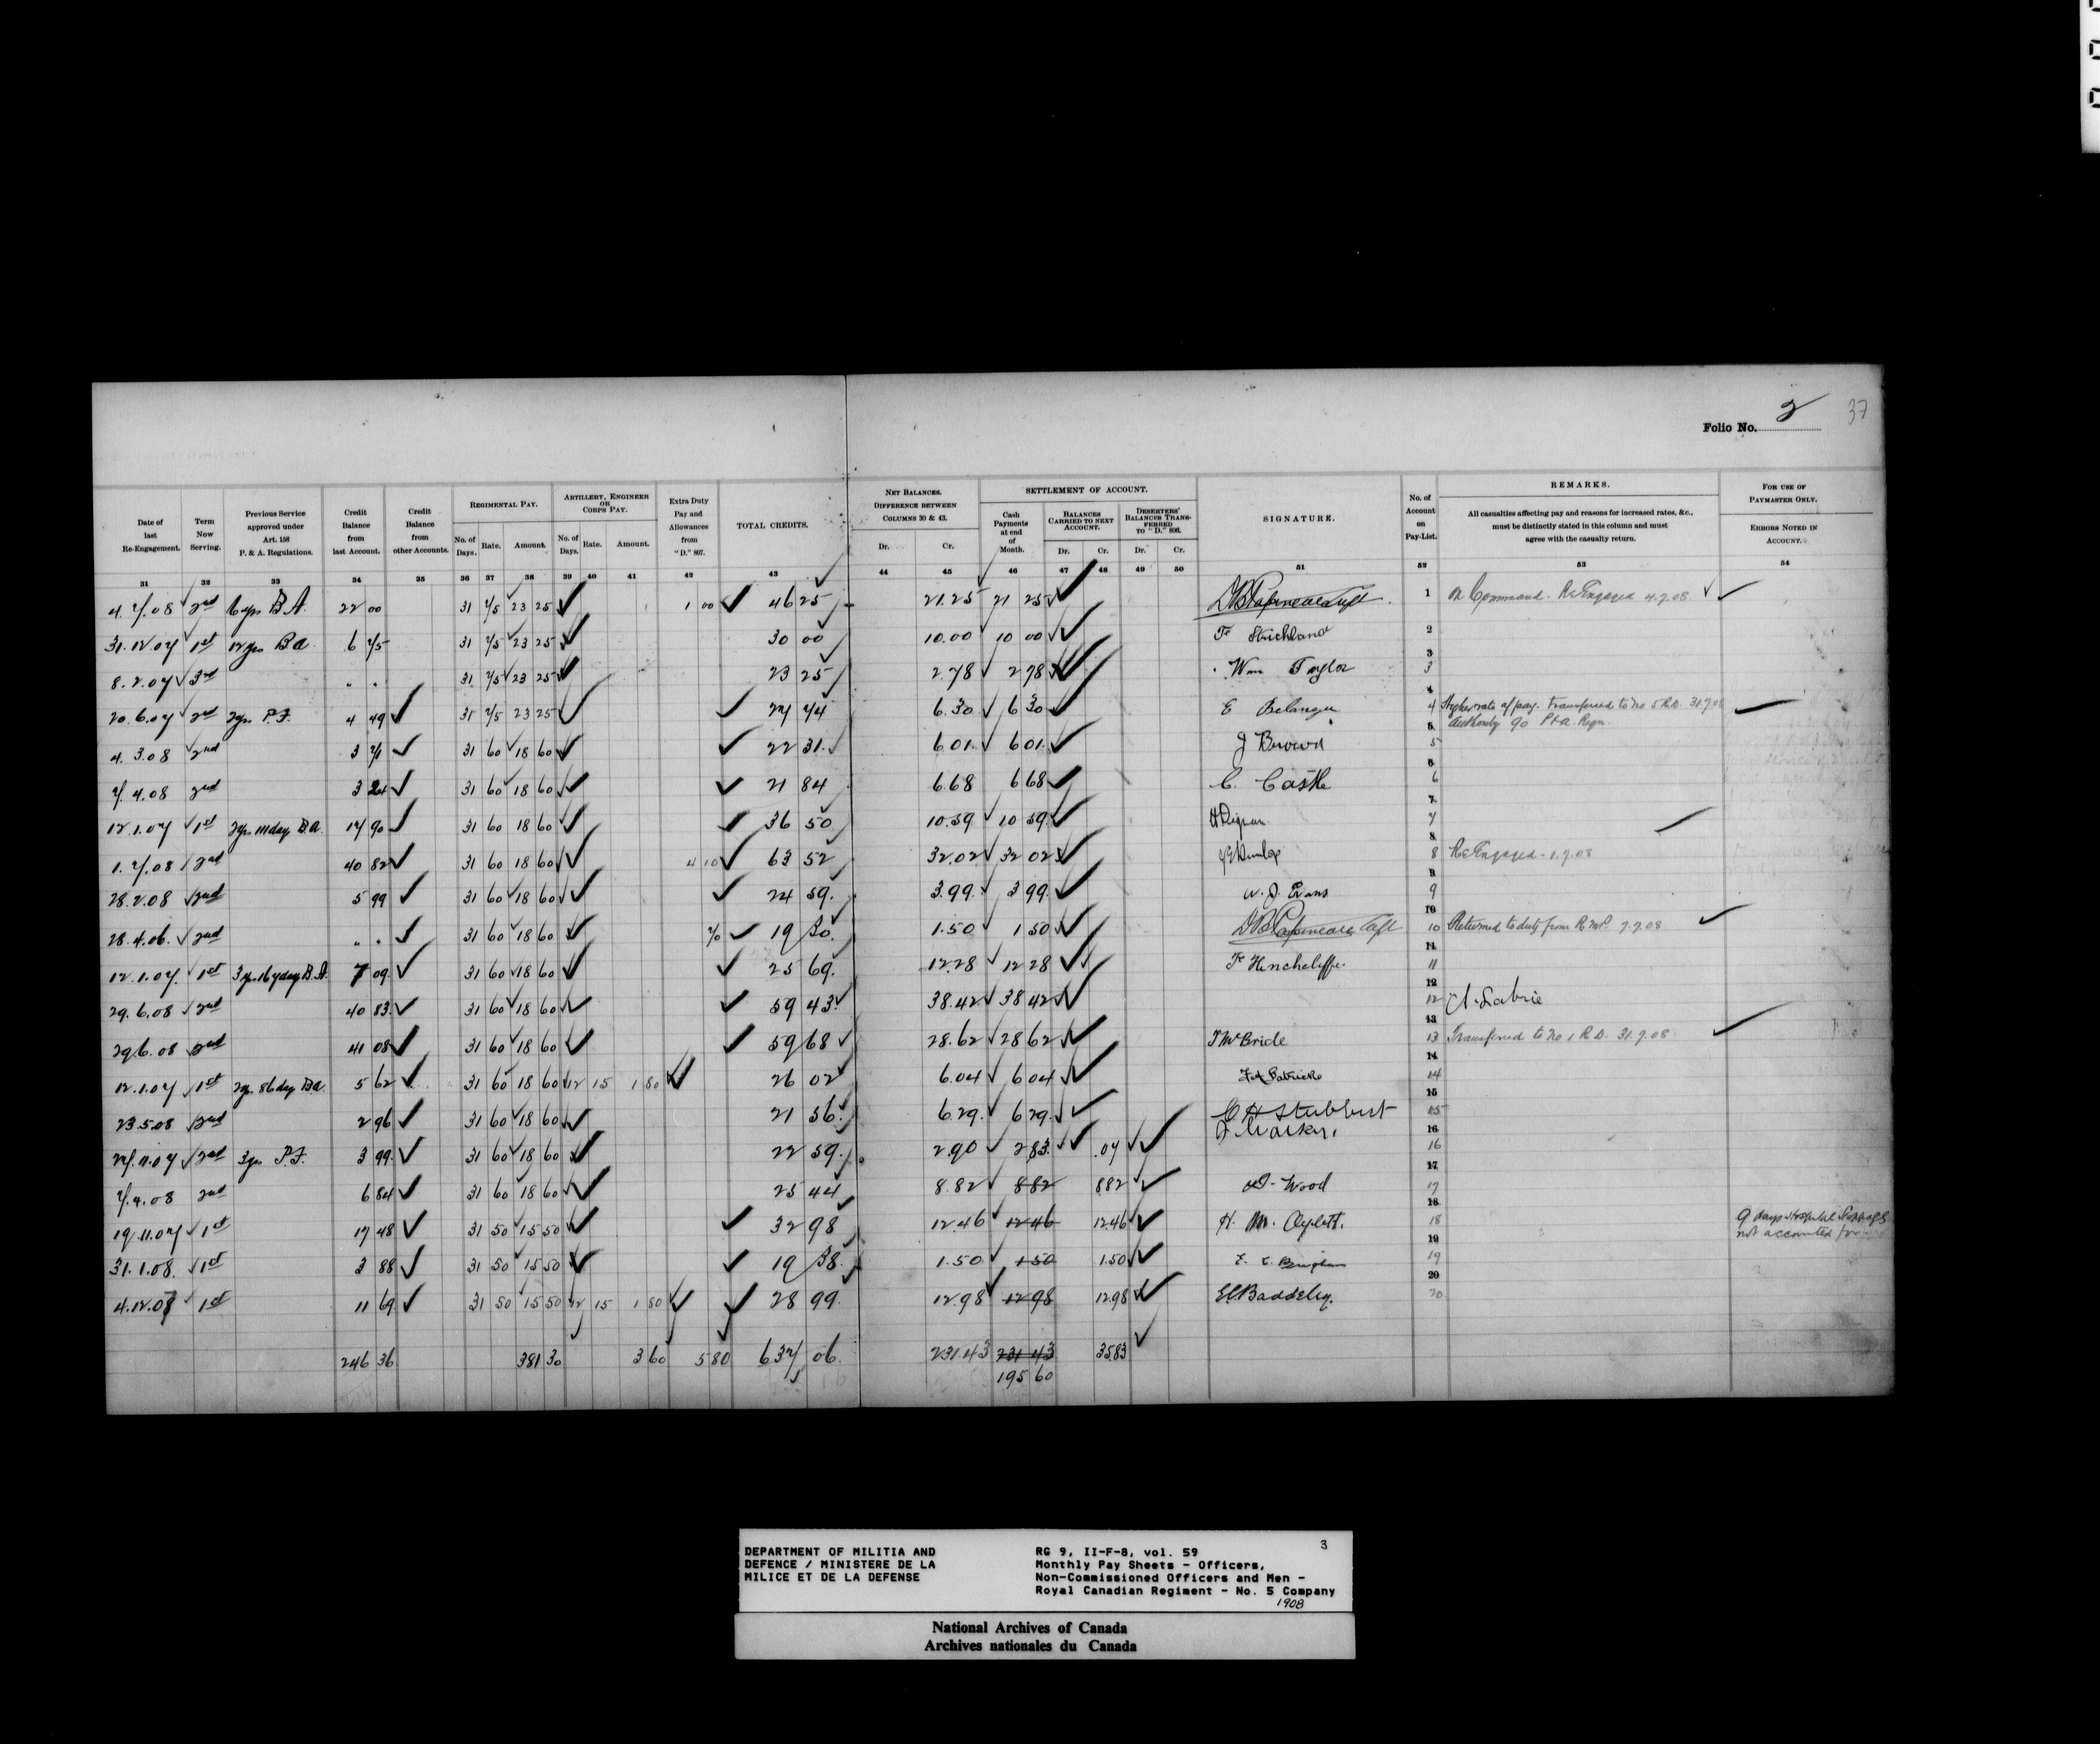 Folio No. 2 37
Date of last Re-Engagement. Term Now Serving. Previous Service approved under Art. 158 P. & A. Regulations. Credit Balance from last Account. Credit Balance from other Accounts. REGIMENTAL PAY. No. of Days. Rate. Amount. ARTILLERY, ENGINEER OR CORPS PAY. No. of Days. Rate. Amount. Extra Duty Pay and Allowances from "D." 807. TOTAL CREDITS. NET BALANCES. DIFFERENCE BETWEEN COLUMNS 30 & 43. Dr. Cr. SETTLEMENT OF ACCOUNT. Cash Payments at end of Month. BALANCES CARRIED TO NEXT ACCOUNT. Dr. Cr. DESERTERS' BALANCES TRANSFERRED TO "D." 806. Dr. Cr. SIGNATURE. No. of Account on Pay-List. REMARKS. All casualties affecting pay and reasons for increased rates, &c., must be distinctly stated in this column and must agree with the casualty return. FOR USE OF PAYMASTER ONLY. ERRORS NOTED IN ACCOUNT.
31 32 33 34 35 36 37 38 39 40 41 42 43 44 45 46 47 48 49 50 51 52 53 54
4.7.08 2nd 6 yrs B.A. 22 00 31 75 23 25 1 00 46 25 21.25 21 25 1 On Command. Re Engaged 4.7.08
31.12.07 1st 12 yrs B A 6 75 31 75 23 25 30 00 10.00 10 00 F Strickland 2
8.2.07 3rd " " 31 75 23 25 23 25 2.78 2 78 Wm Taylor 3
20.6.07 2nd 2 yrs P.F. 4 49 31 75 23 25 27 74 6.30 6 30 E Belanger 4 Higher rate of pay. Transferred to No 5 R.D. 31.7.08
Authority 90 P & A. Regn.
4.3.08 2nd 3 71 31 60 18 60 22 31 6.01 6 01 J Brown 5
7.4.08 2nd 3 24 31 60 18 60 21 84 6.68 6 68 C. Castle 6
12.1.07 1st 2 yrs 111 day B.A. 17 90 31 60 18 60 36 50 10.59 10 59 7
1.7.08 2nd 40 82 31 60 18 60 4 10 63 52 32.02 32 02 Dunlop 8 Re Engaged - 1.7.08
28.2.08 2nd 5 99 31 60 18 60 24 59 3.99 3 99 W. J. Evans 9
28.4.06 2nd " " 31 60 18 60 70 19 30 1.50 1 50 10 Returned to duty from R.M.P. 7.7.08
12.1.07 1st 3 yrs 167 day B.A. 7 09 31 60 18 60 25 69 12.28 12 28 F Hinchcliffe. 11
29.6.08 2nd 40 83 31 60 18 60 59 43 38.42 38 42 12 A. Labrie
29.6.08 2nd 41 08 31 60 18 60 59 68 28.62 28 62 T McBride 13 Transferred to No 1 R.D. 31.7.08
12.1.07 1st 2 yrs 86 day B A. 5 62 31 60 18 60 12 15 1 80 26 02 6.04 6 04 Patrick 14
23.5.08 2nd 2 96 31 60 18 60 21 56 6 29 6 29 C H Stubbert 15
27.11.07 2nd 3 yrs P.F. 3 99 31 60 18 60 22 59 2.90 2 83 .07 16
7.4.08 2nd 6 84 31 60 18 60 25 44 8.82 8 82 8 82 Wood 17
19.11.07 1st 17 48 31 50 15 50 32 98 12.46 12 46 12.46 H. M. Aylett. 18 9 days Hospital Stoppages
not accounted for
31.1.08 1st 3 88 31 50 15 50 19 38 1.50 1 50 1.50 E. E. Bingham 19
4.12.07 1st 11 69 31 50 15 50 12 15 1 80 28 99 12.98 12 98 12.98 E.C. Baddeley. 20
246 36 381 30 3 60 5 80 637 06 231.43 231 43 35.83
195 60
DEPARTMENT OF MILITIA AND
DEFENCE / MINISTERE DE LA
MILICE ET DE LA DEFENSE
RG 9, II-F-8, vol. 59 3
Monthly Pay Sheets - Officers,
Non-Commissioned Officers and Men -
Royal Canadian Regiment - No. 5 Company
1908
National Archives of Canada
Archives nationales du Canada